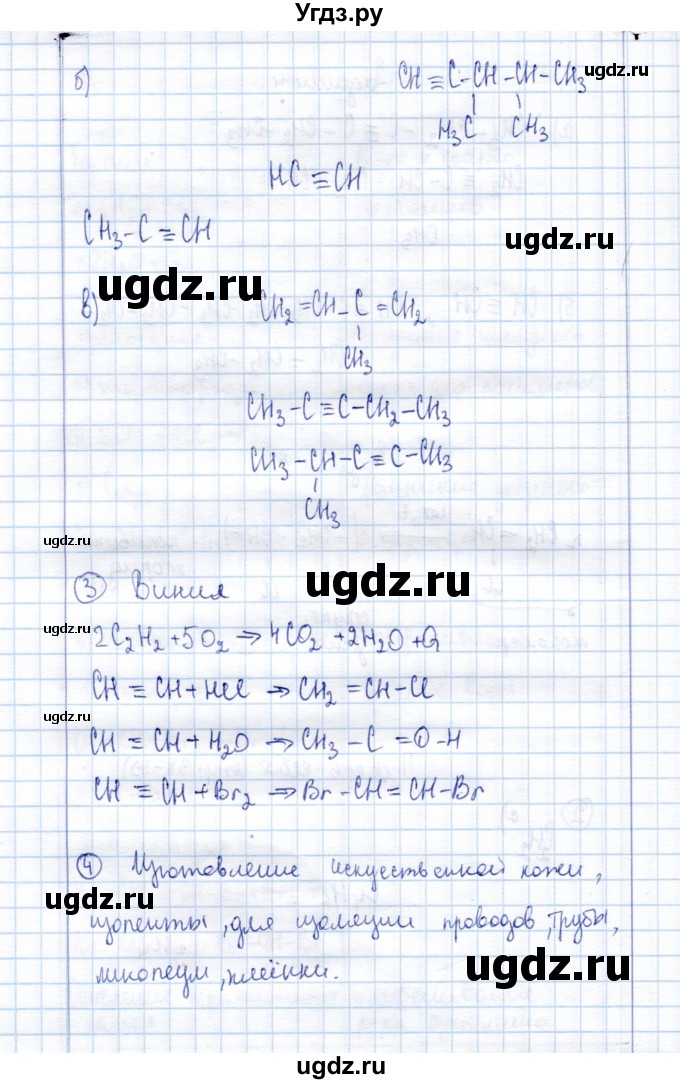 Угдз.ру
б)
CH≡C-CH-CH-CH3
ugdz.ru
H3C CH3
HC≡CH
CH3-C≡CH
ugdz.ru
ugdz.ru
в) CH2=CH-C=CH2
CH3
CH3-C≡C-CH2-CH3
CH3-CH-C≡C-CH3
ugdz.ru
CH3
ugdz.ru
③ Винил
ugdz.ru
ugdz.ru
2C2H2+5O2→4CO2+2H2O+Q
CH≡CH+HCl→CH2=CH-Cl
ugdz.ru
CH≡CH+H2O→CH3-C=O-H
CH≡CH+Br2→Br-CH=CH-Br
ugdz.ru
④ Изготовление искусственной кожи,
изоленты, для изоляции проводов, трубы,
линолеум, клеёнки.
ugdz.ru
ugdz.ru